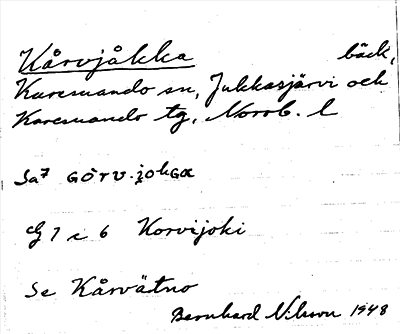 Kårvjåkka bäck,
Karesuando sn, Jukkasjärvi och
Karesuando tg, Norrb. l
Sa7 GÒrv.johGα
G 7 i 6 Korvijoki
Se Kårvätno
Bernhard Nilsson 1948